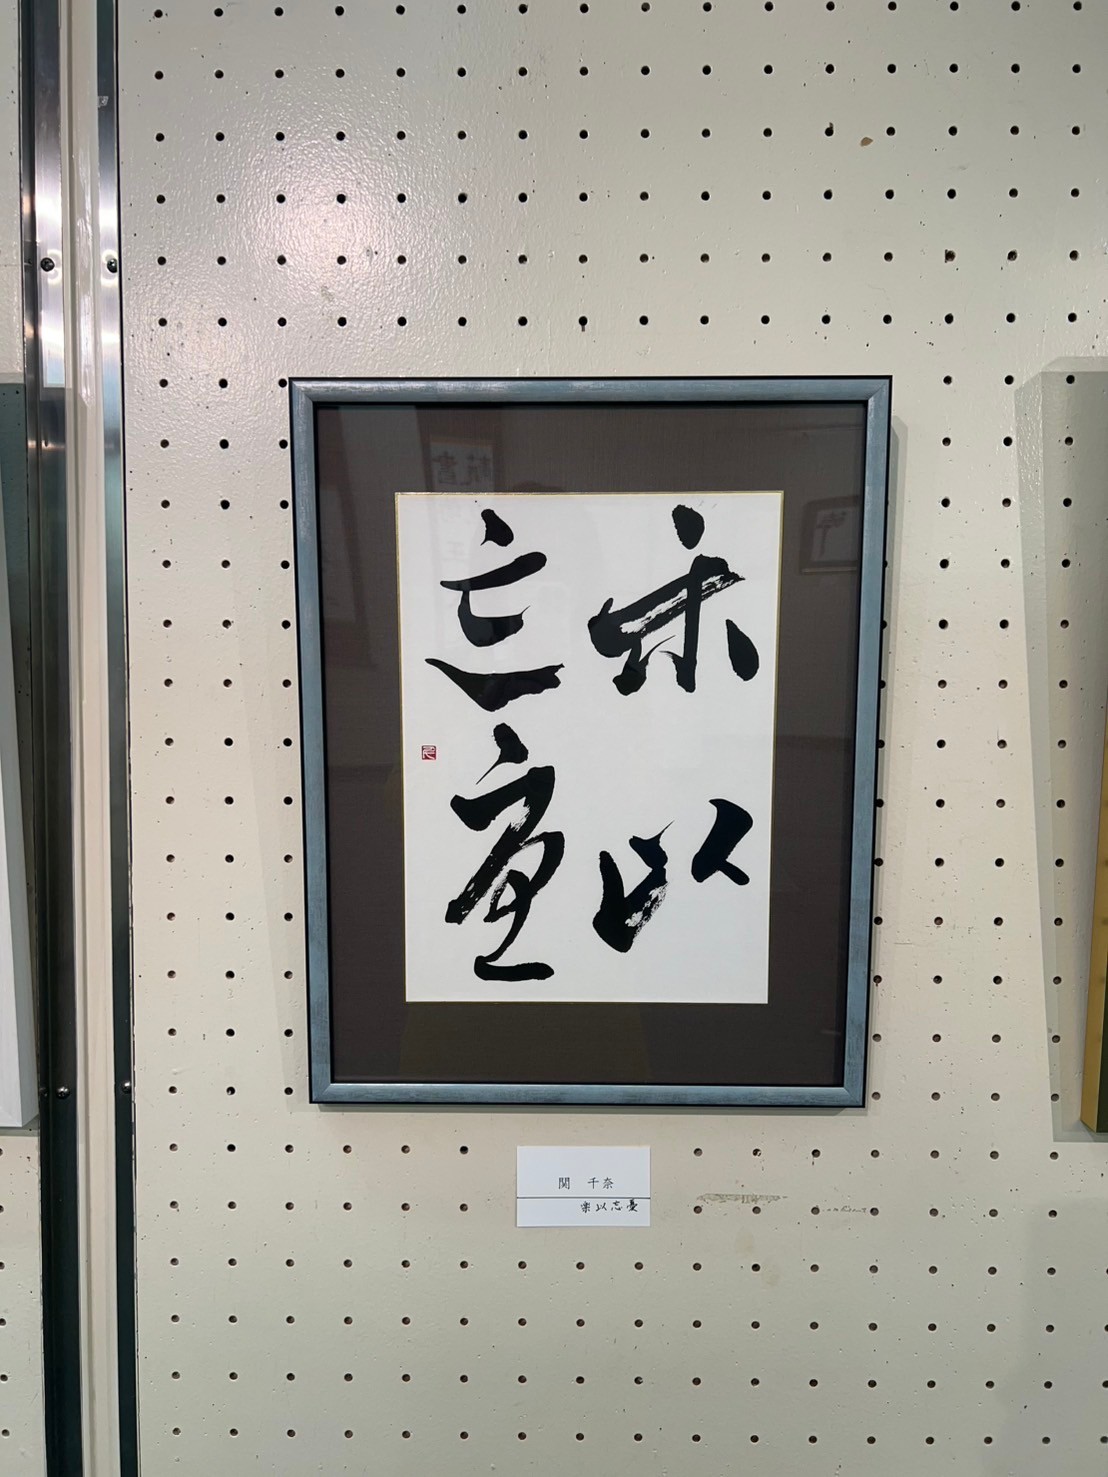 楽以
忘憂
関 千奈
楽以忘憂